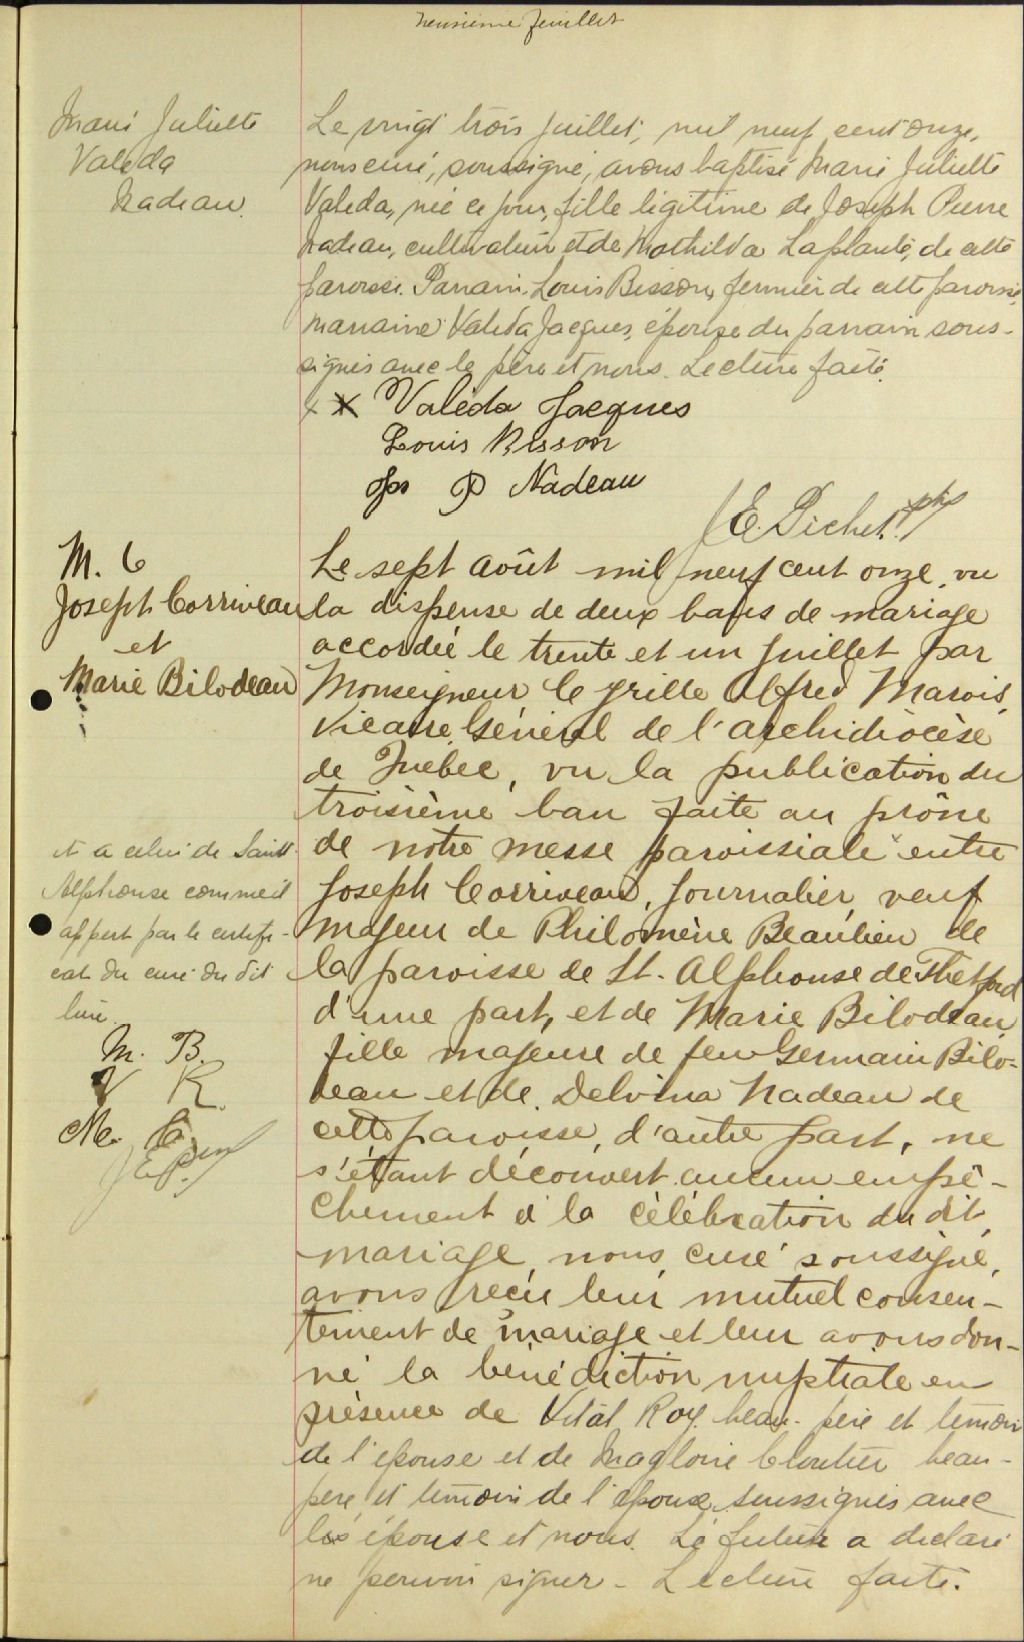 feuillet
Marie Juliette
Valeda
Nadeau.
Le vingt trois juillet, mil neuf cent onze,
nous curé, soussigné, avons baptisé Marie Juliette
Valeda, née ce jour, fille légitime de Joseph Pierre
Nadeau, cultivateur et de Mathilda Laplante, de cette
paroisse. Parrain Louis Bisson, fermier de cette paroisse,
marraine Valéda Jacques, épouse du parrain sous-
signés avec le père et nous. Lecture faite.
x x Valéda Jacques
Louis Bisson
Jos P Nadeau
J E. Pichet. ptre
M. 6
Joseph Corriveau
et
Marie Bilodeau
Le sept août mil neuf cent onze, vu
la dispense de deux bans de mariage
accordée le trente et un juillet par
Monseigneur Cyrille Alfred Marois,
Vicaire Général de l'archidiocèse
de Québec, vu la publication du
troisième ban faite au prône
de notre messe paroissiale x entre
Joseph Corriveau, journalier, veuf
majeur de Philomène Beaulieu de
la paroisse de St. Alphonse de Thetford
d'une part, et de Marie Bilodeau,
fille majeure de feu Germain Bilo-
deau et de Delvina Nadeau de
cette paroisse, d'autre part, ne
s'étant découvert aucun empê-
chement à la célébration du dit
mariage, nous, curé soussigné,
avons reçu leur mutuel consen-
tement de mariage et leur avons don-
né la bénédiction nuptiale en
présence de Vital Roy beau-père et témoin
de l'épouse et de Magloire Cloutier beau-
père et témoin de l'époux soussignés avec
les épouse et nous. Le futur a déclaré
ne pouvoir signer - Lecture faite.
et a celui de Saint
Alphonse comme il
appert par le certifi-
cat du curé du dit
lieu.
M. B.
V R.
M. C.
J E P. ptre